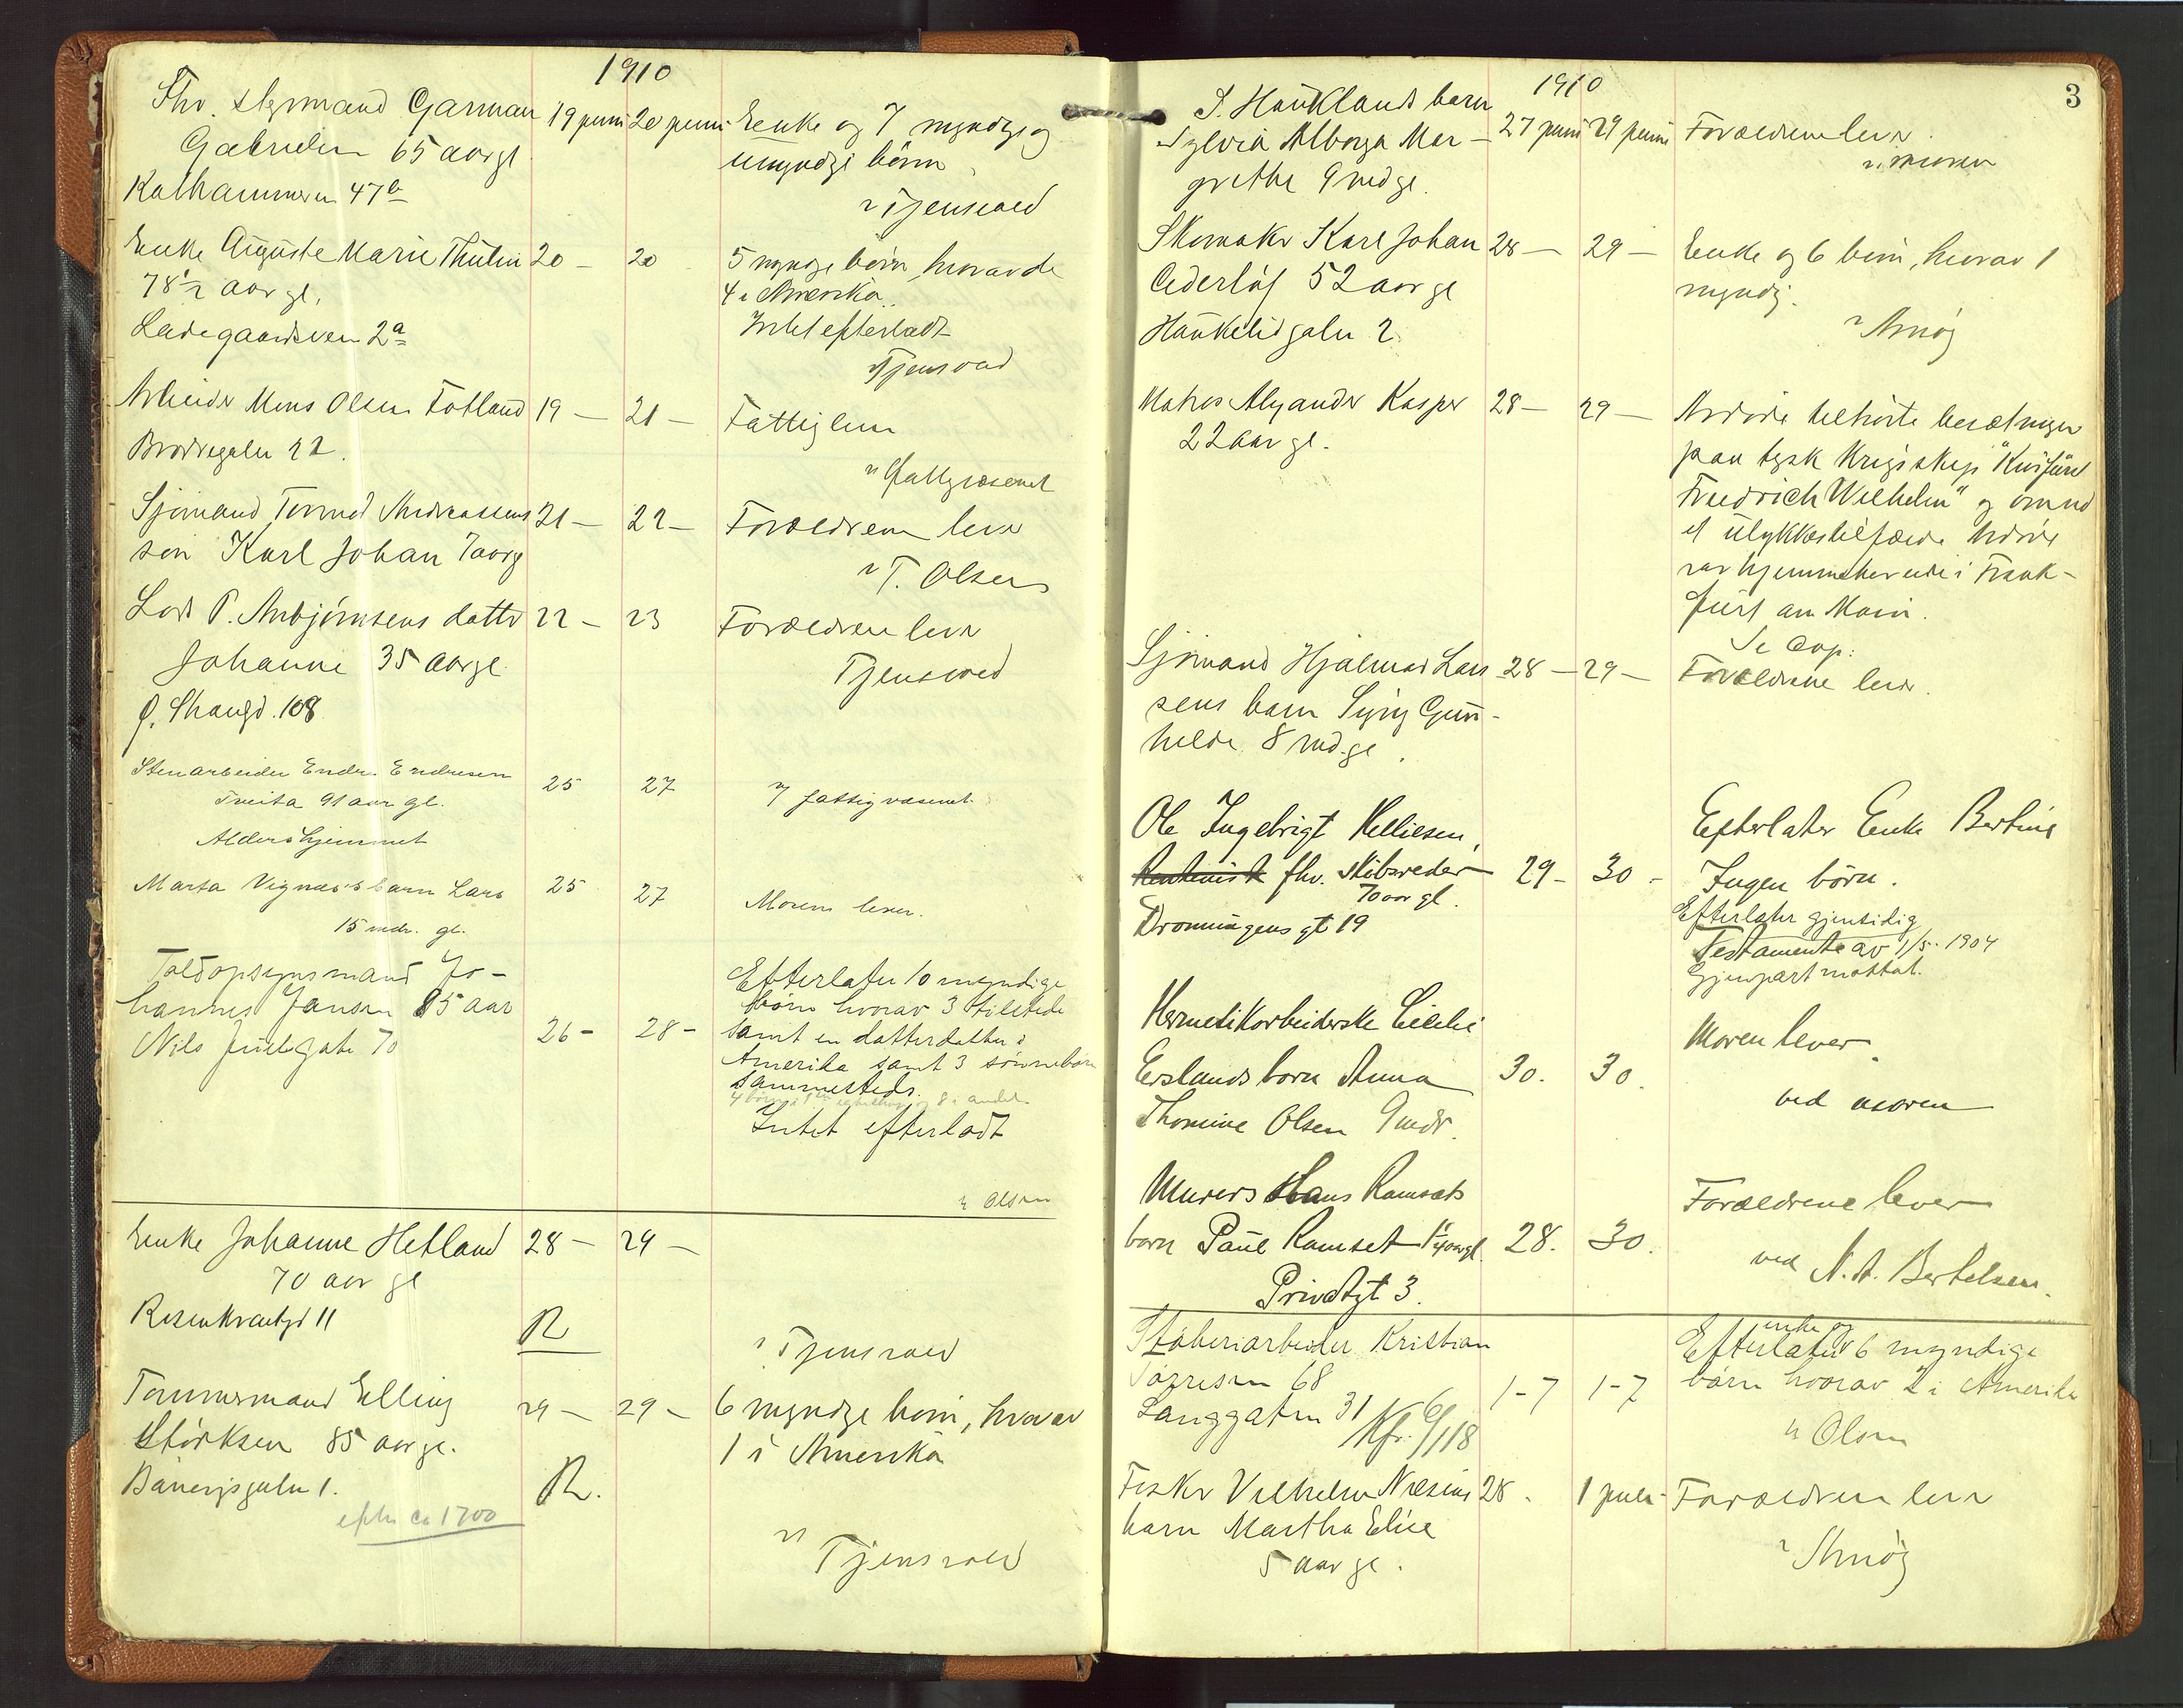 1910
Fhv. Styrmand Garman 19 juni 20 juni Enke og 7 myndige og
Gabrielsen 65 aar gl umyndige børn
Kalhammeren 47b v Tjensvold
Enke Auguste Marie Thulin 20 – 20 5 myndige børn hvorav de
78½ aar gl. 4 i Amerika.
Ladegaardsveien 2a Intet efterladt
v Tjensvold
Arbeider Mons Olsen Fotland 19 – 21 – Fattiglem
Brødregaten 22. v Fattigvæsenet
Sjømand Tormod Andreassens 21 – 22 – Forældrene lever
søn Karl Johan 7 aar g v T. Olsen
Lods P. Anbjørnsens datter 22 – 23 Forældrene lever
Johanne 35 aar gl. Tjensvold
Ø. Strangt. 108
Stenarbeider Endre Endresen 25 27 v/ fattigvæsenet
Tveita 91 aar gl.
Aldershjemmet
Marta Vignæs's barn Lars 25 27 Moren lever.
15 mdr. gl.
Toldopsynsmand Jo-
hannes Jansen 85 aar
Nils Juelsgate 70 26 – 28 –
Efterlater 10 myndige
børn hvorav 3 tilstede
samt en datterdatter i
Amerika samt 3 sønnebørn
sammesteds.
4 børn i 1ste egteskap og 8 i andet.
Intet efterladt
v Olsen
Enke Johanne Hetland 28 – 29 –
70 aar gl
Rosenkrantzgt 11 R
v. Tjensvold
Tømmermand Elling 29 – 29 – 6 myndige børn, hvorav
Størksen 85 aar gl. 1 i Amerika
Banevigsgaten 1. R.
efterl. ca 1700
v Tjensvold
1910
3
S. Hauklands barn
Sylvia Alborga Mar- 27 juni 29 juni Forældrene lever
grethe 9 md gl. v. moren
Skomaker Karl Johan 28 – 29 – Enke og 6 børn, hvorav 1
Cederløf 52 aar gl myndig.
Haukeligaten 2 v Arnøy
Matros Alexander Kasper 28 – 29 – Avdøde tilhørte besætningen
22 aar gl. paa tysk krigsskip "Kurfürst
Friedrich Wilhelm" og omkom ved
et ulykkestilfælde. Avdøde
var hjemmehørende i Frank-
furt am Main.
Se Cop:
Sjømand Hjalmar Lar- 28 – 29 – Forældrene lever.
sens barn Signy Gun-
hilde 8 md. gl.
Ole Ingebrigt Helliesen, Efterlater Enke Bertine
Rentenist fhv. skibsreder 29 – 30 – Ingen børn.
70 aar gl.
Dronningens gt 19
Efterlater gjensidig
Testamente av 1/5. 1904
Gjenpart mottat.
Hermetikarbeiderske Cecilie Moren lever.
Erslands barn Anna 30. 30.
Thomine Olsen 9 mdr. ved moren
Murers Hans Ramsets Forældrene lever
barn Paul Ramset 1¼ aar gl. 28. 30.
Privatgt 3. ved N. A. Bertelsen.
Støberiarbeider Kristian enke og
Tørresen 68 Efterlater 6 myndige
Langgaten 31 1-7 1-7 børn hvorav 2 i Amerika
Kfr. 6/1 18 v Olsen
Fisker Vilhelm Nilsens 28. 1 juli Forældrene lever
barn Martha Elise
5 aar gl. v Arnøy